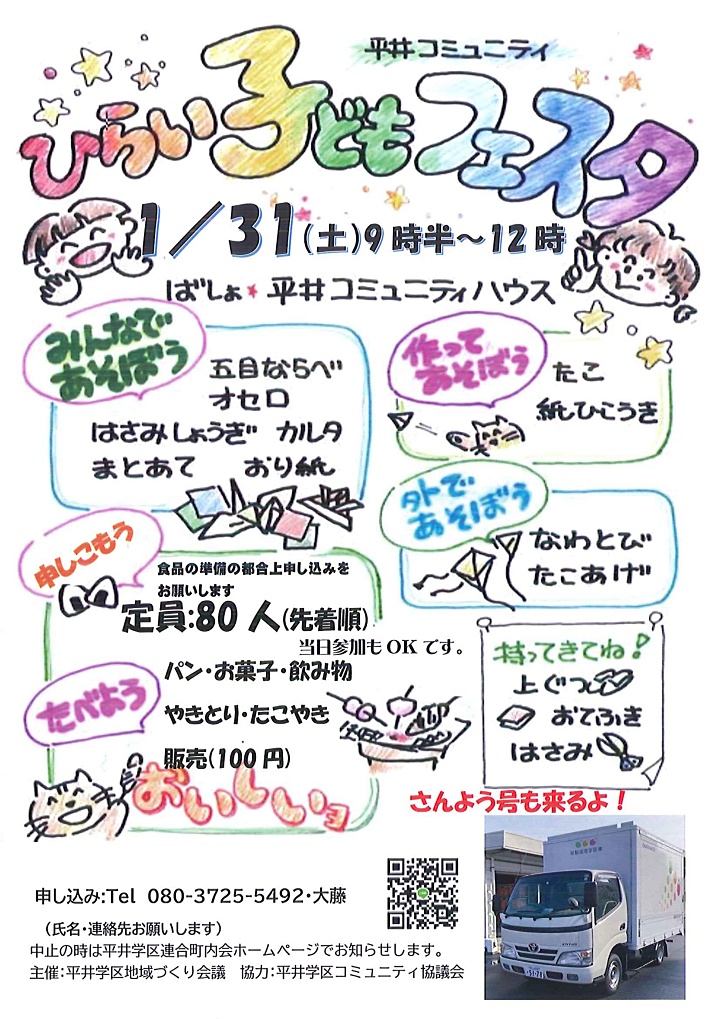 平井コミュニティ
ひらい子どもフェスタ
1／31(土)9時半～12時
ばしょ★平井コミュニティハウス
みんなで
あそぼう
五目ならべ
オセロ
はさみしょうぎ カルタ
まとあて おり紙
作って
あそぼう
たこ
紙ひこうき
外で
あそぼう
なわとび
たこあげ
申しこもう
食品の準備の都合上申し込みを
お願いします
定員:80人(先着順)
当日参加もOKです。
たべよう
パン・お菓子・飲み物
やきとり・たこやき
販売(100円)
おいしいョ
持ってきてね!
上ぐつ
おてふき
はさみ
さんよう号も来るよ！
申し込み:Tel 080-3725-5492・大藤
（氏名・連絡先お願いします）
中止の時は平井学区連合町内会ホームページでお知らせします。
主催:平井学区地域づくり会議 協力:平井学区コミュニティ協議会